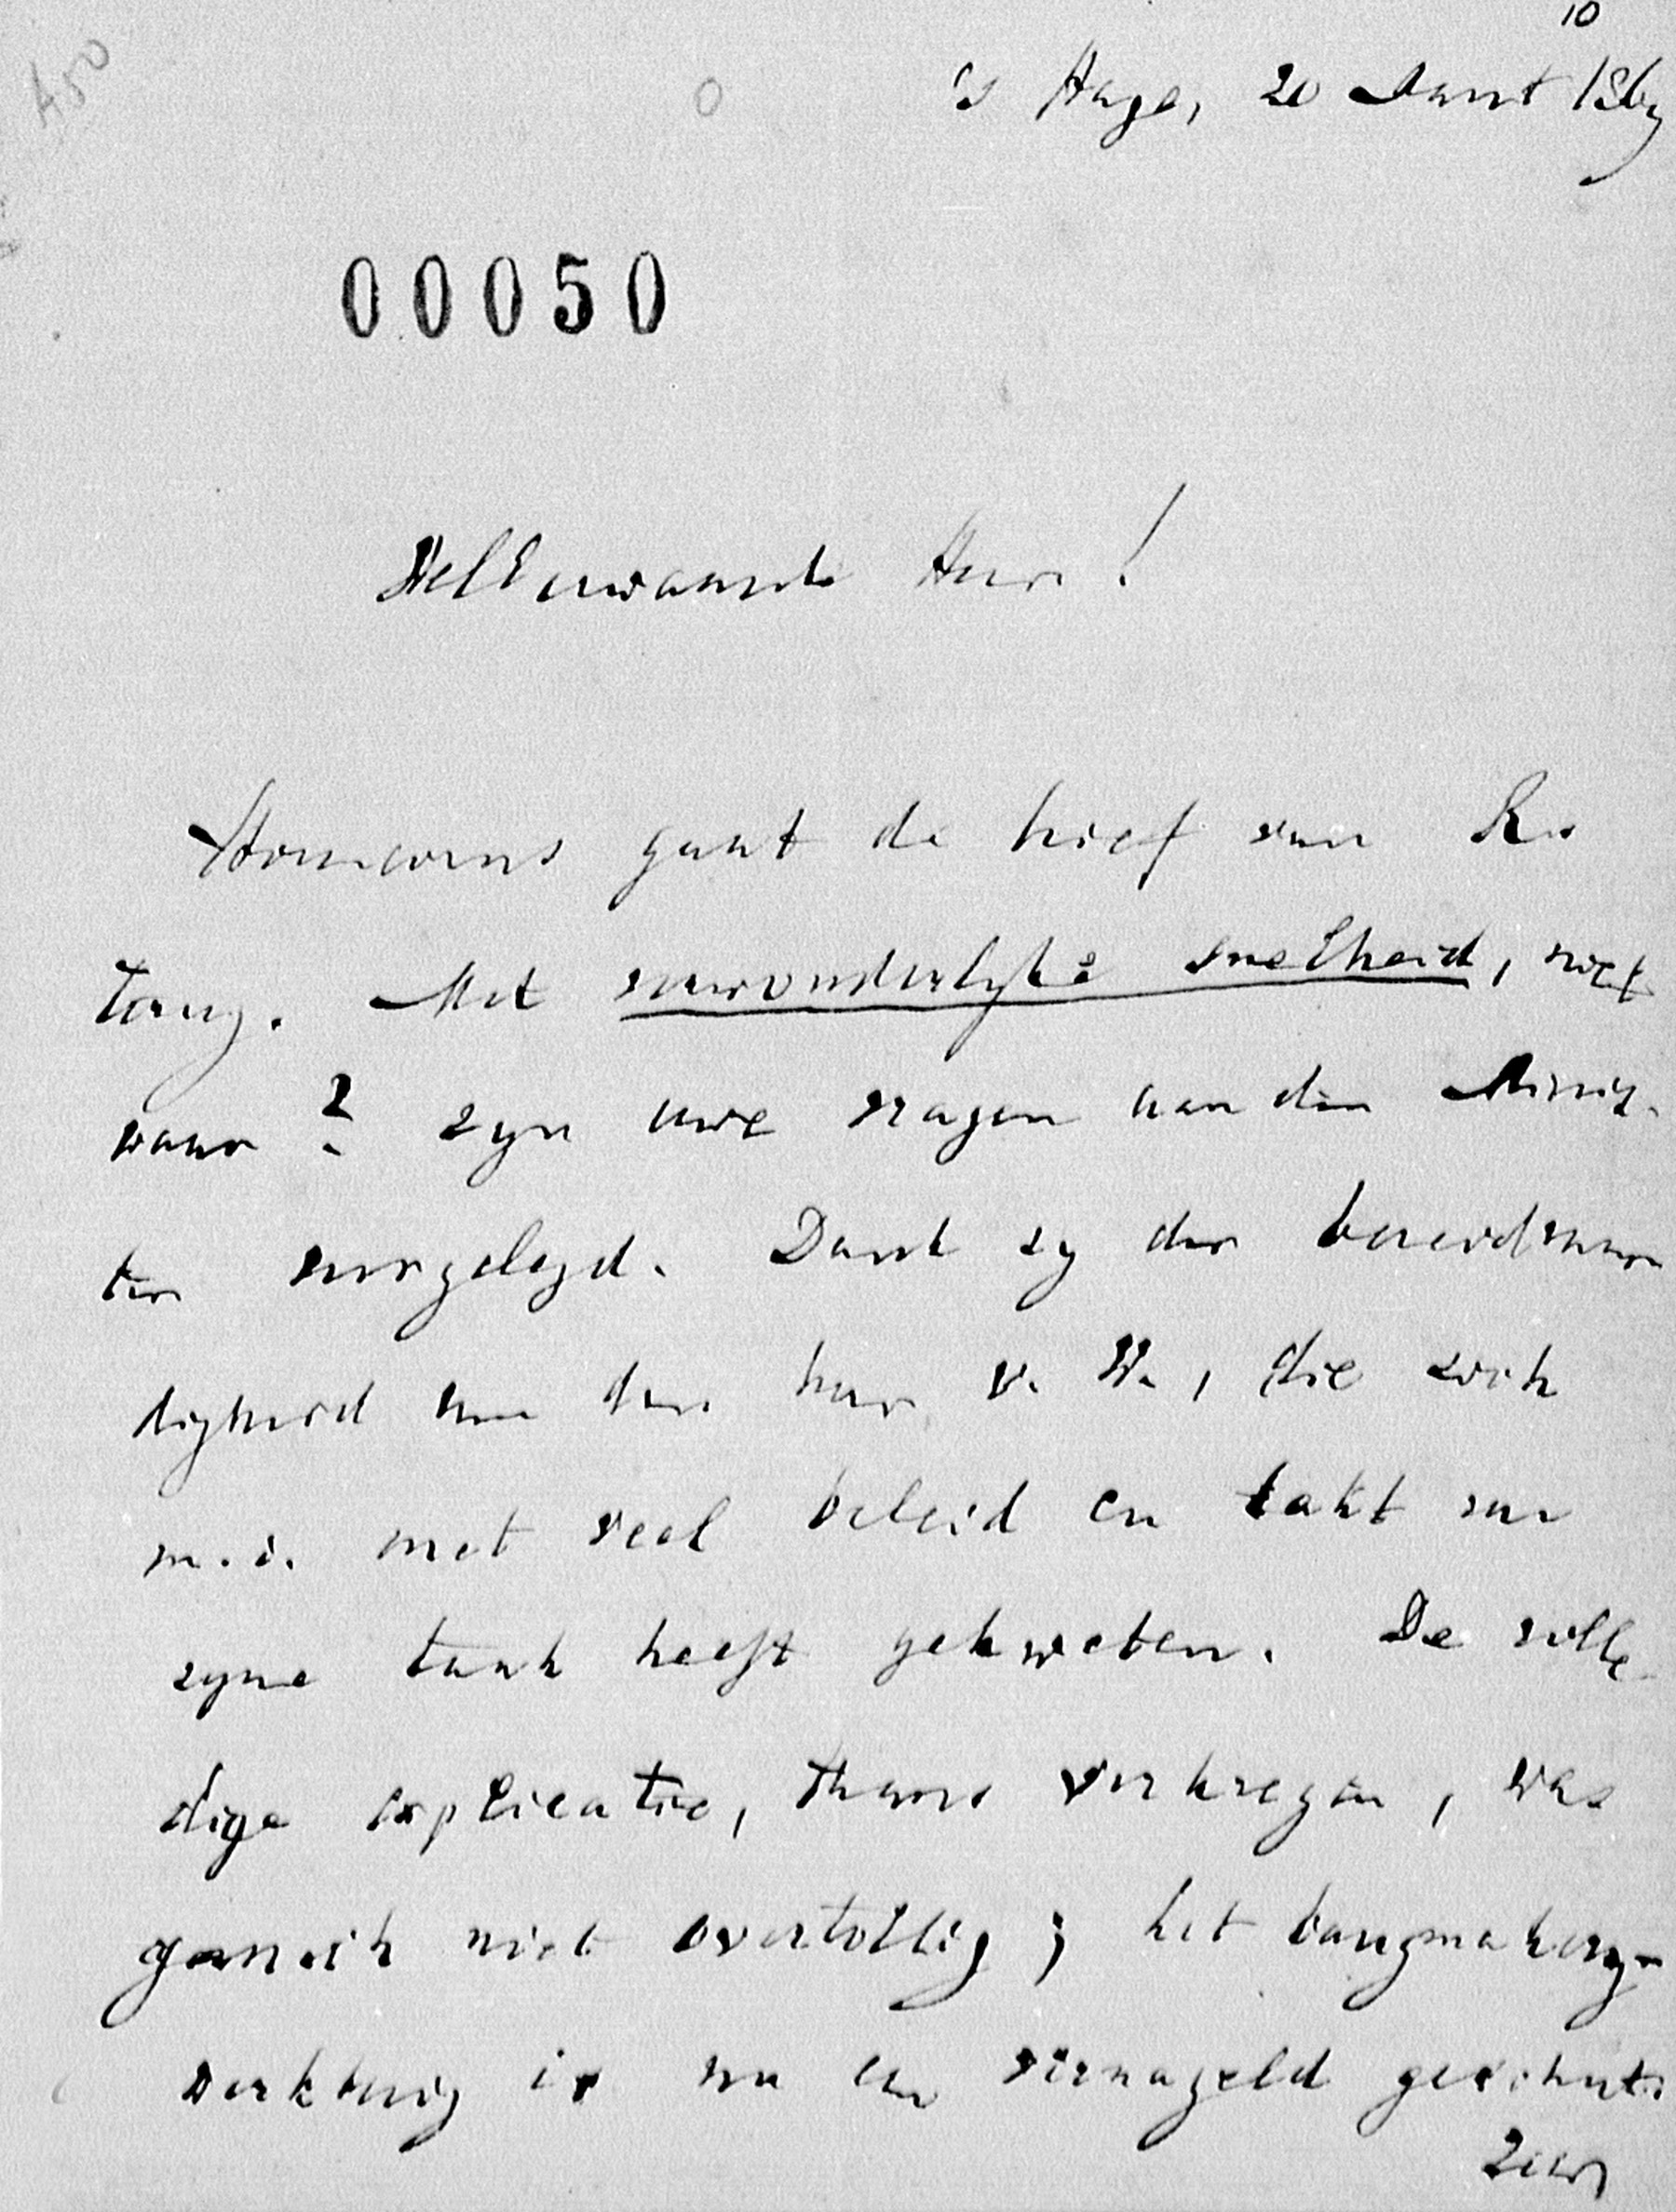 10
A50
's Hage, 20 Maart 1869
00050
WelEerwaarde Heer!
Hiernevens gaat de brief van Ku
terug. Met verwonderlyke snelheid, niet
waar? zyn uwe vragen aan den Minis-
ter voorgelegd. Dank zy der bereidvaar
digheid van den heer v. W., die zich
m.i. met veel beleid en takt van
zyne taak heeft gekweten. De volle-
dige explicatie, thans verkregen, was
gansch niet overtollig; het bangmakery-
werktuig is nu en vernageld geschut.
Zeer